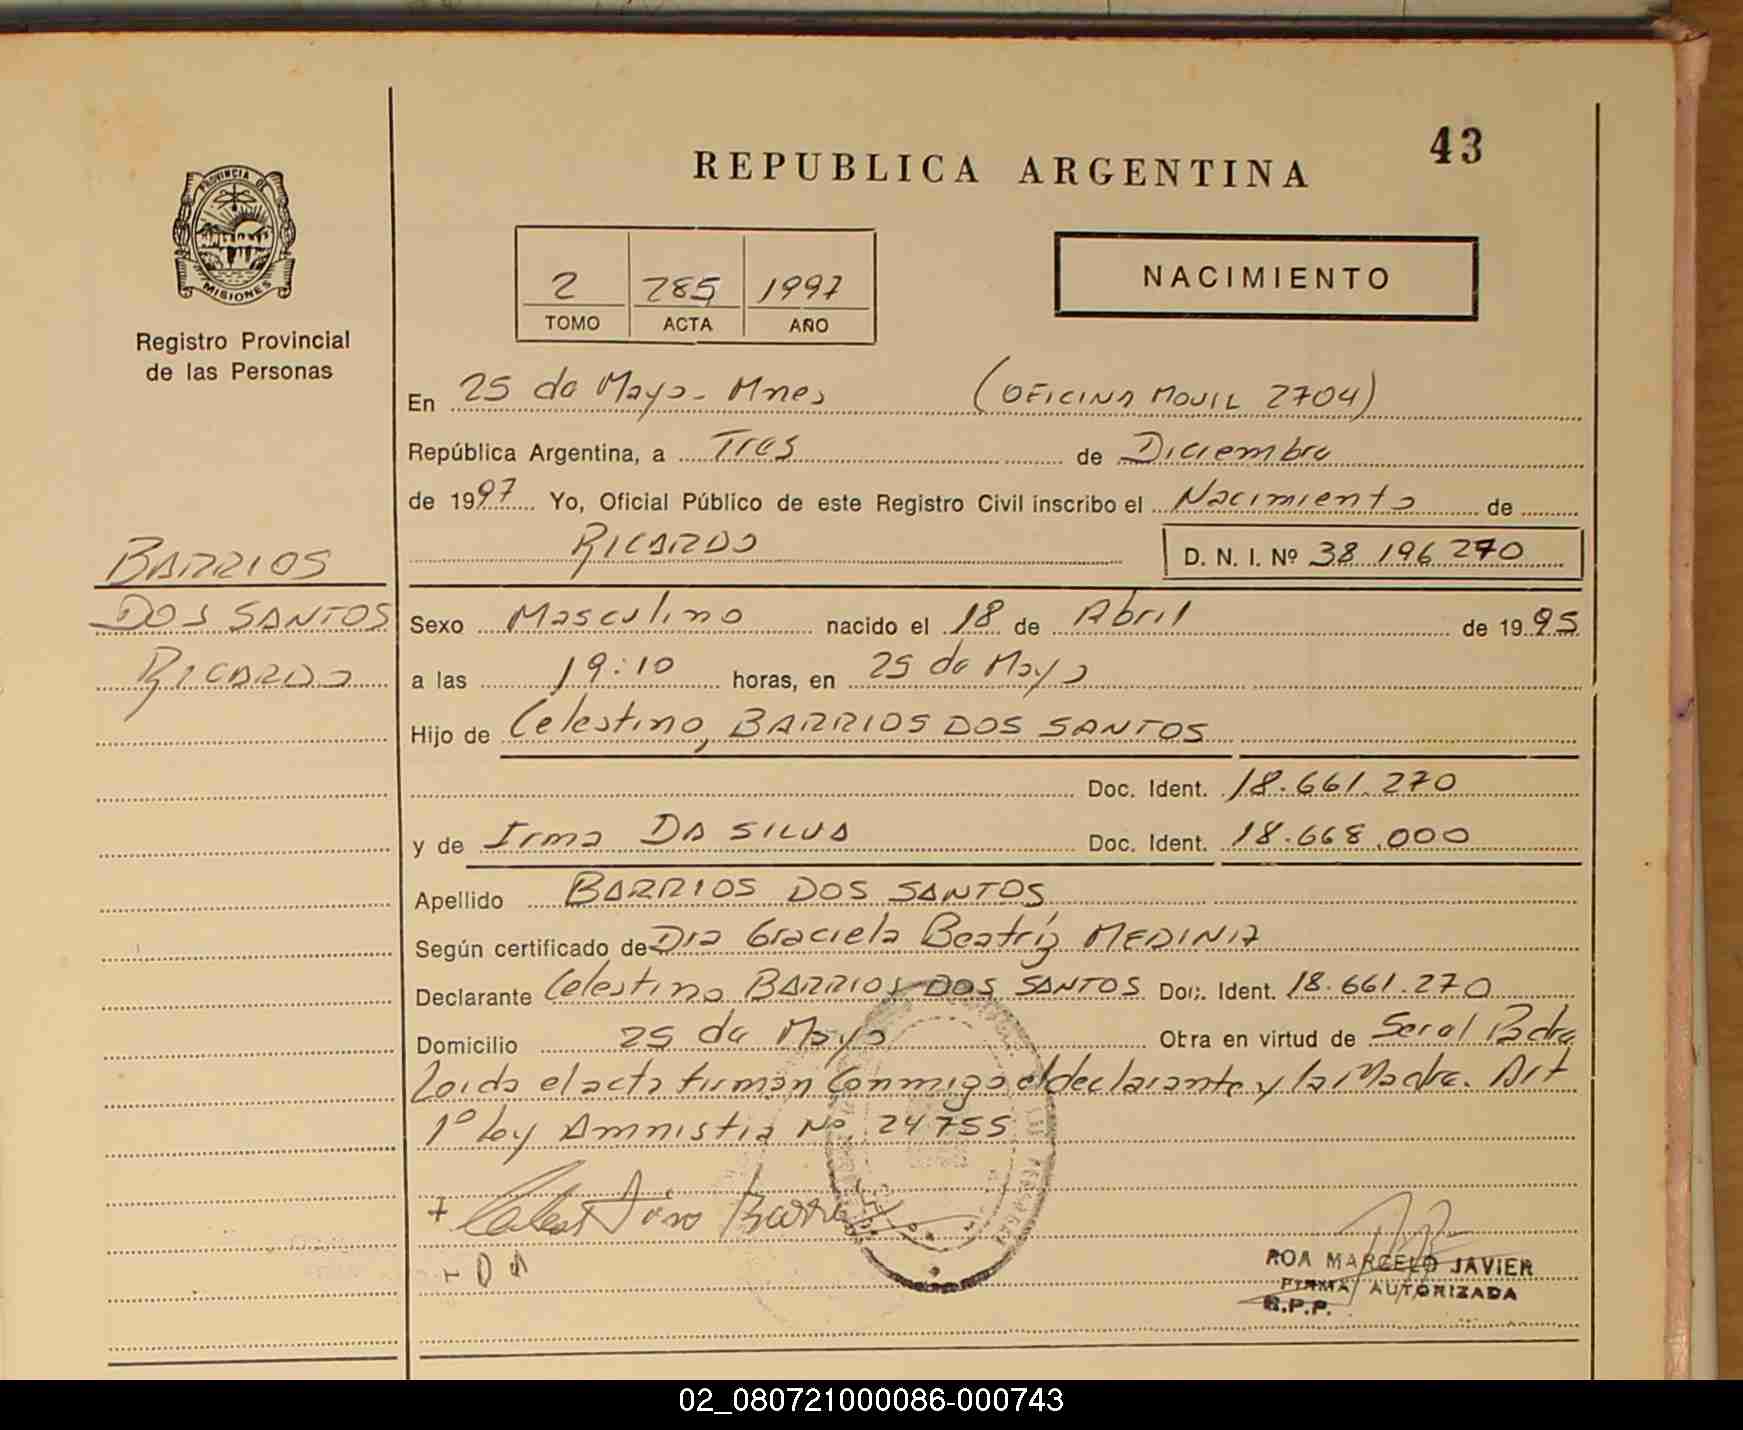 43
REPUBLICA ARGENTINA
PROVINCIA DE
MISIONES
Registro Provincial
de las Personas
2 285 1997
TOMO ACTA AÑO
NACIMIENTO
En 25 de Mayo - Mnes (OFICINA MOVIL 2704)
República Argentina, a Tres de Diciembre
de 1997 Yo, Oficial Público de este Registro Civil inscribo el Nacimiento de
RICARDO D. N. I. Nº 38 196 270
BARRIOS
DOS SANTOS
RICARDO
Sexo Masculino nacido el 18 de Abril de 1995
a las 19:10 horas, en 25 de Mayo
Hijo de Celestino, BARRIOS DOS SANTOS
Doc. Ident. 18.661.270
y de Irma DA SILVA Doc. Ident. 18.668.000
Apellido BARRIOS DOS SANTOS
Según certificado de Dra Graciela Beatriz MEDINA
Declarante Celestino BARRIOS DOS SANTOS Doc. Ident. 18.661.270
Domicilio 25 de Mayo Obra en virtud de Ser el Padre
Leida el acta firman conmigo el declarante y la Madre. Art
1º Ley Amnistia Nº 24755
Celestino Barrios
ROA MARCELO JAVIER
FIRMA AUTORIZADA
R.P.P.
02_080721000086-000743